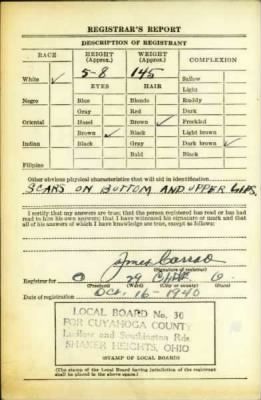 REGISTRAR'S REPORT
DESCRIPTION OF REGISTRANT
RACE HEIGHT (Approx.) WEIGHT (Approx.) COMPLEXION
White ✓ 5-8 145 Sallow
EYES HAIR Light
Negro Blue Blonde Ruddy
Gray Red Dark
Oriental Hazel Brown ✓ Freckled
Brown ✓ Black Light brown
Indian Black Gray Dark brown ✓
Bald Black
Filipino
Other obvious physical characteristics that will aid in identification
SCARS ON BOTTOM AND UPPER LIPS.
I certify that my answers are true; that the person registered has read or has had
read to him his own answers; that I have witnessed his signature or mark and that
all of his answers of which I have knowledge are true, except as follows:
(Signature of registrar)
Registrar for O 29 O.
(Precinct) (Ward) (City or county) (State)
Date of registration Oct. 16-1940
LOCAL BOARD No. 30
FOR CUYAHOGA COUNTY
Ludlow and Southington Rds.
SHAKER HEIGHTS, OHIO
(STAMP OF LOCAL BOARD)
(The stamp of the Local Board having jurisdiction of the registrant
shall be placed in the above space.)